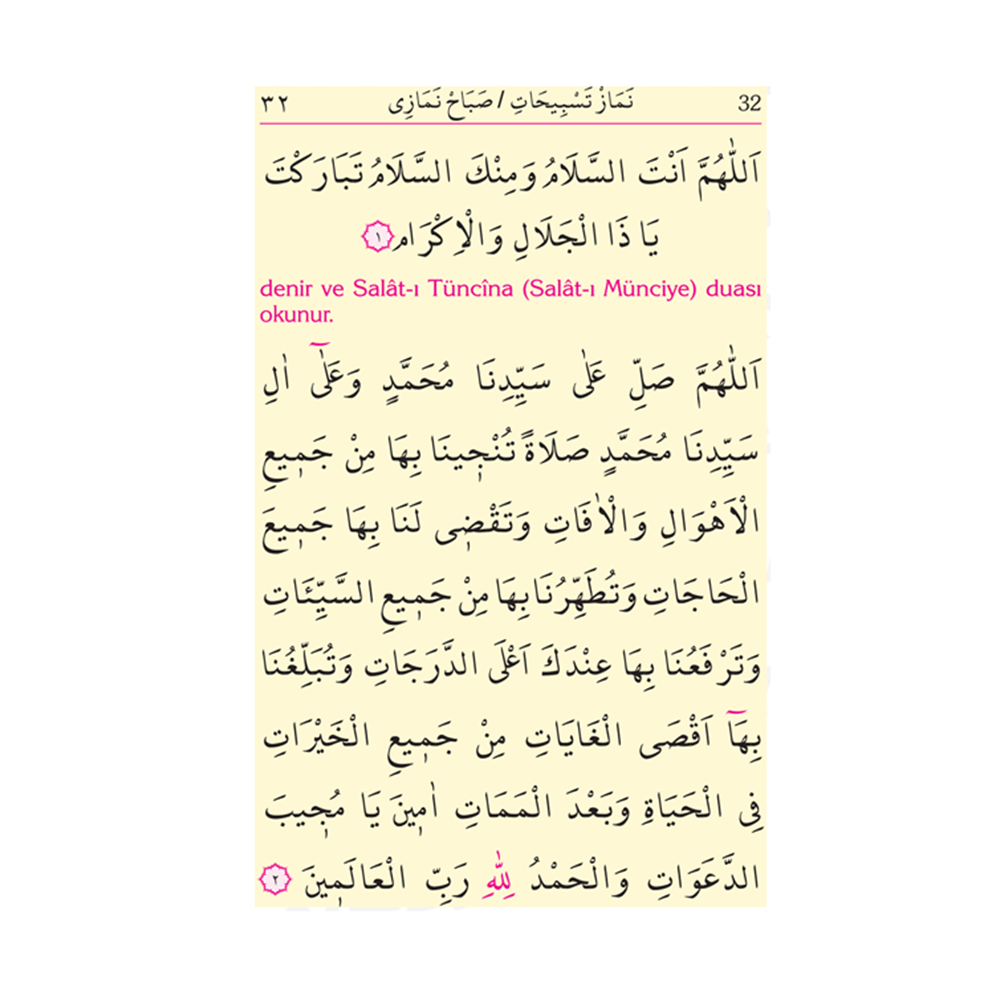 ٣٢ نَمَازْ تَسْبِيحَاتِ / صَبَاحْ نَمَازِى 32
اَللّٰهُمَّ اَنْتَ السَّلَامُ وَمِنْكَ السَّلَامُ تَبَارَكْتَ
يَا ذَا الْجَلَالِ وَالْاِكْرَامِ ١
denir ve Salât-ı Tüncîna (Salât-ı Münciye) duası
okunur.
اَللّٰهُمَّ صَلِّ عَلٰى سَيِّدِنَا مُحَمَّدٍ وَعَلٰٓى اٰلِ
سَيِّدِنَا مُحَمَّدٍ صَلَاةً تُنْج۪ينَا بِهَا مِنْ جَم۪يعِ
الْاَهْوَالِ وَالْاٰفَاتِ وَتَقْض۪ى لَنَا بِهَا جَم۪يعَ
الْحَاجَاتِ وَتُطَهِّرُنَا بِهَا مِنْ جَم۪يعِ السَّيِّئَاتِ
وَتَرْفَعُنَا بِهَا عِنْدَكَ اَعْلَى الدَّرَجَاتِ وَتُبَلِّغُنَا
بِهَٓا اَقْصَى الْغَايَاتِ مِنْ جَم۪يعِ الْخَيْرَاتِ
فِى الْحَيَاةِ وَبَعْدَ الْمَمَاتِ اٰم۪ينَ يَا مُج۪يبَ
الدَّعَوَاتِ وَالْحَمْدُ لِلّٰهِ رَبِّ الْعَالَم۪ينَ ٢